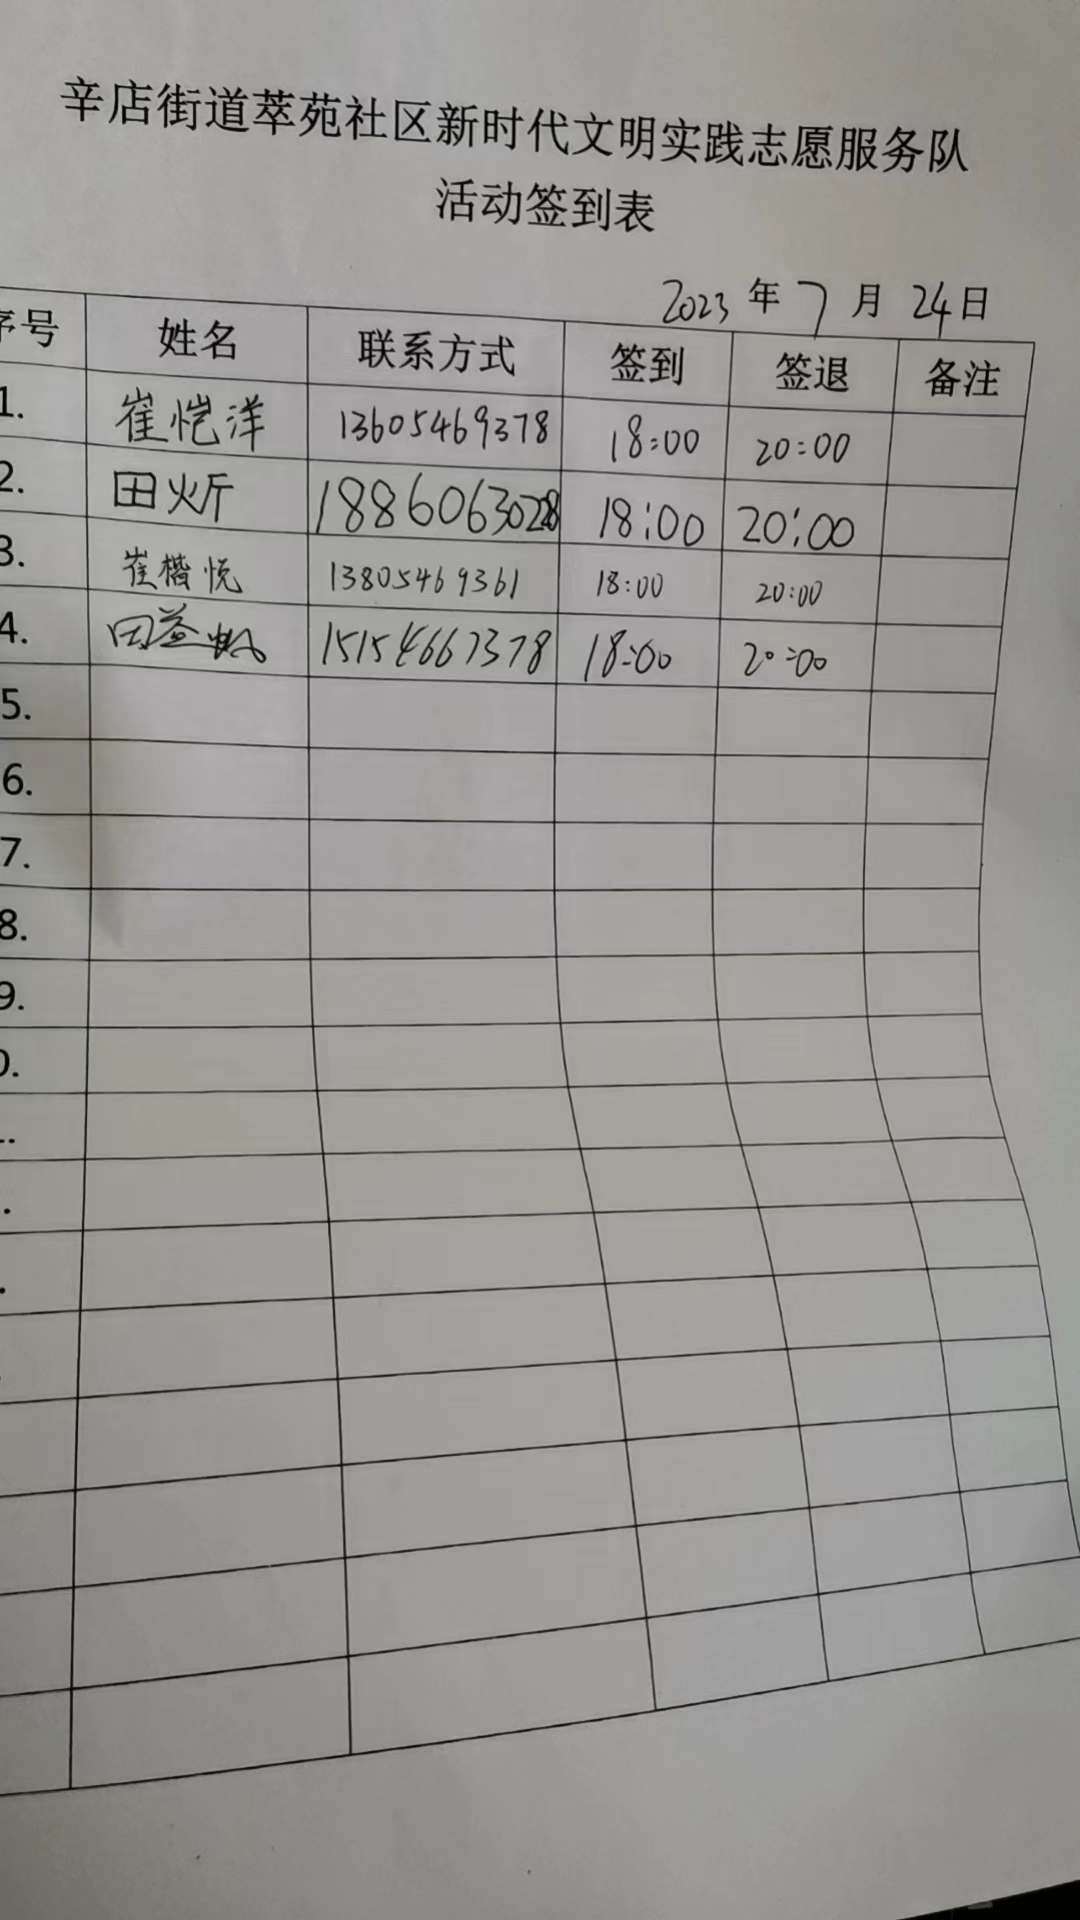 辛店街道萃苑社区新时代文明实践志愿服务队
活动签到表
2023 年 7 月 24 日
序号 姓名 联系方式 签到 签退 备注
1. 崔恺洋 13605469378 18:00 20:00
2. 田炘 18860630228 18:00 20:00
3. 崔楷悦 13805469361 18:00 20:00
4. 田益 15154667378 18:00 20:00
5.
6.
7.
8.
9.
0.